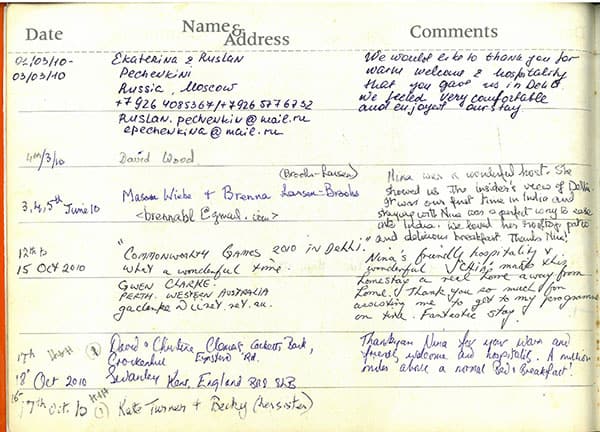 Date Name & Address Comments
01/03/10 -
03/03/10
Ekaterina & Ruslan
Pechenkini
Russia, Moscow
+7 926 4085367/+7926 5776732
Ruslan.pechenkin@mail.ru
epechenkina@mail.ru
We would like to thank you for
warm welcome & hospitality
that you gave us in Dehli
We feeled very comfortable
and enjoyed our stay
4th/3/10
David Wood
3, 4, 5th June 10
(Brooks-Larsen)
Mason Wiebe + Brenna Larsen-Brooks
Nina was a wonderful host. She
showed us the insider's view of Delhi.
It was our first time in India and
staying with Nina was a perfect way to ease
into India. We loved her rooftop patio
and delicious breakfast. Thanks Nina!
12th to
15 Oct 2010
"Commonwealth Games 2010 in Delhi."
What a wonderful time.
Gwen Clarke.
Perth. Western Australia
Nina's friendly hospitality &
wonderful made this
homestay a real home away from
home. Thank you so much for
assisting me to get to my programme
on time. Fantastic stay!
17th
18th Oct 2010
David & Christine
Crockenhill Eynsford Rd.
Swanley Kent, England BR8
Thankyou Nina for your warm and
friendly welcome and hospitality. A million
miles above a normal Bed & Breakfast!
17th Oct. 10 (1) Kate Turner + Becky (her sister)